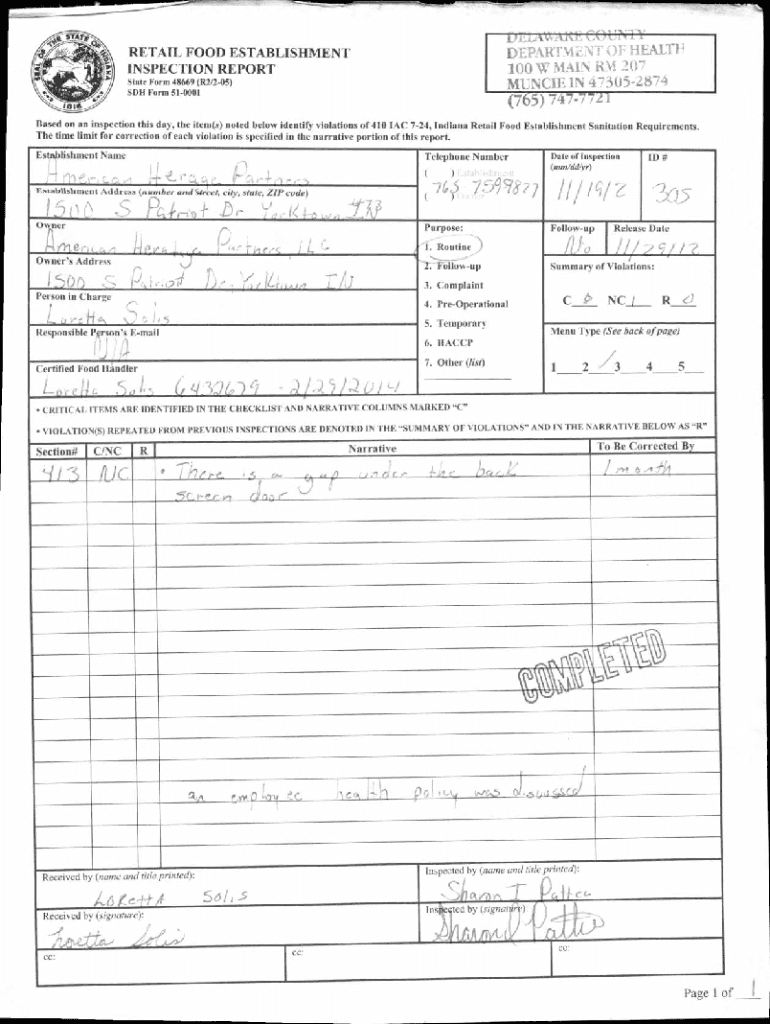 DELAWARE COUNTY
DEPARTMENT OF HEALTH
100 W MAIN RM 207
MUNCIE IN 47305-2874
(765) 747-7721
RETAIL FOOD ESTABLISHMENT
INSPECTION REPORT
State Form 48669 (R2/2-05)
SDH Form 51-0001
SEAL OF THE STATE OF INDIANA
1816
Based on an inspection this day, the item(s) noted below identify violations of 410 IAC 7-24, Indiana Retail Food Establishment Sanitation Requirements.
The time limit for correction of each violation is specified in the narrative portion of this report.
Establishment Name
American Herage Partners
Telephone Number
( ) Establishment
765 7599827
( ) Owner
Date of Inspection
(mm/dd/yr)
11/19/2
ID #
305
Establishment Address (number and street, city, state, ZIP code)
1500 S Patriot Dr Yorktown IN
Owner
American Heratage Partners, LLC
Purpose:
1. Routine
2. Follow-up
3. Complaint
4. Pre-Operational
5. Temporary
6. HACCP
7. Other (list)
Follow-up
No
Release Date
11/29/12
Owner's Address
1500 S Patriot Dr. Yorktown IN
Summary of Violations:
C 0 NC 1 R 0
Person in Charge
Loretta Solis
Responsible Person's E-mail
N/A
Menu Type (See back of page)
1 2 3 4 5
Certified Food Handler
Loretta Solis 6432679 - 2/29/2014
• CRITICAL ITEMS ARE IDENTIFIED IN THE CHECKLIST AND NARRATIVE COLUMNS MARKED "C"
• VIOLATION(S) REPEATED FROM PREVIOUS INSPECTIONS ARE DENOTED IN THE "SUMMARY OF VIOLATIONS" AND IN THE NARRATIVE BELOW AS "R"
Section# C/NC R Narrative To Be Corrected By
413 NC • There is a gap under the back 1 month
screen door
COMPLETED
an employee health policy was discussed
Received by (name and title printed):
LORettA SOLiS
Inspected by (name and title printed):
Sharon I Pattie
Received by (signature):
Loretta Solis
Inspected by (signature):
Sharon Pattie
cc:
cc:
cc:
Page 1 of 1